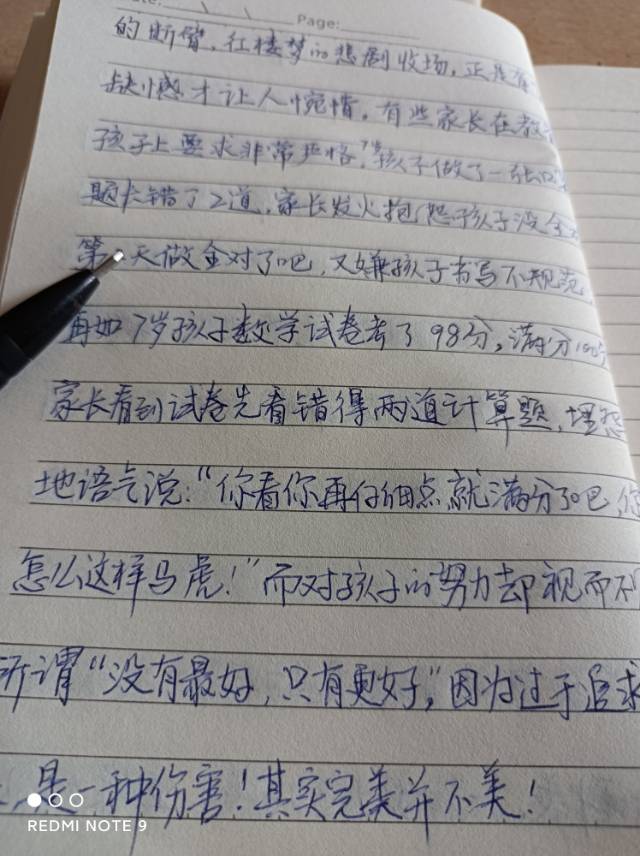 Page:
的断臂，红楼梦的悲剧收场，正是有
缺憾才让人惋惜，有些家长在教
孩子上要求非常严格，孩子做了一张口
题卡错了2道，家长发火抱怨孩子没全
第2天做全对了吧，又嫌孩子书写不规范
再如7岁孩子数学试卷考了98分，满分100分
家长看到试卷先看错得两道计算题，埋怨
地语气说：“你看你再仔细点就满分了吧 你
怎么这样马虎！”而对孩子的努力却视而不
所谓“没有最好，只有更好”，因为过于追求
是一种伤害！其实完美并不美！
REDMI NOTE 9